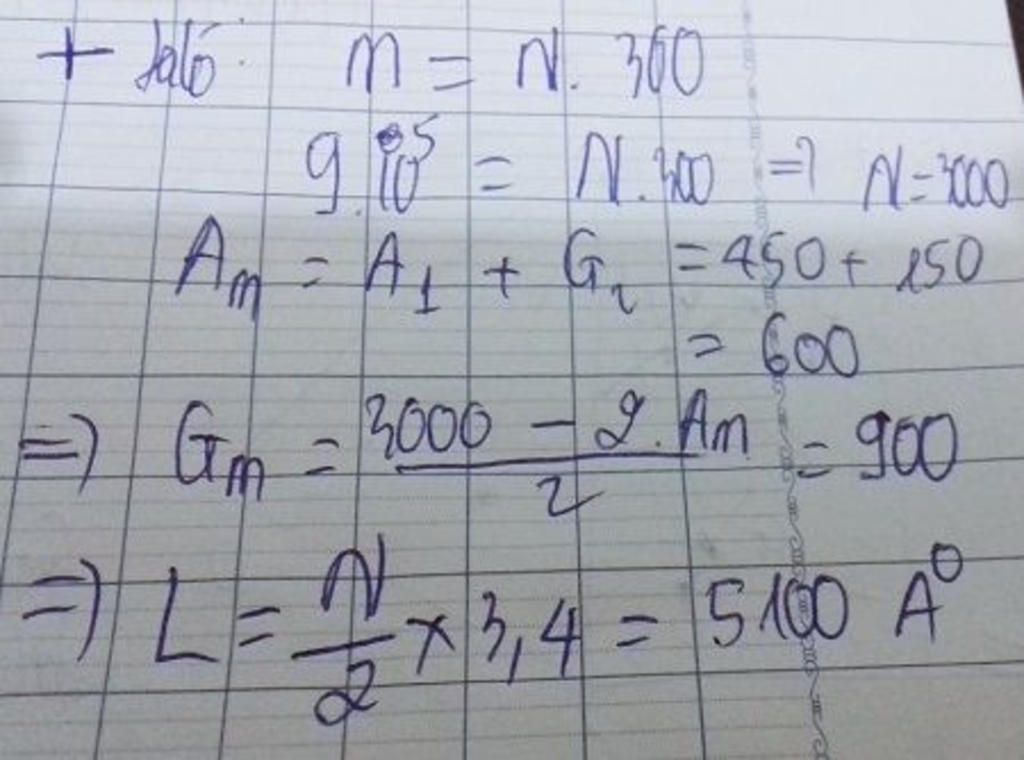 + Ta có: m = N. 300
9.10⁵ = N.300 => N=3000
Am = A₁ + G₂ = 450 + 150
= 600
=> Gm = (3000 - 2.Am)/2 = 900
=> L = N/2 x 3,4 = 5100 A⁰